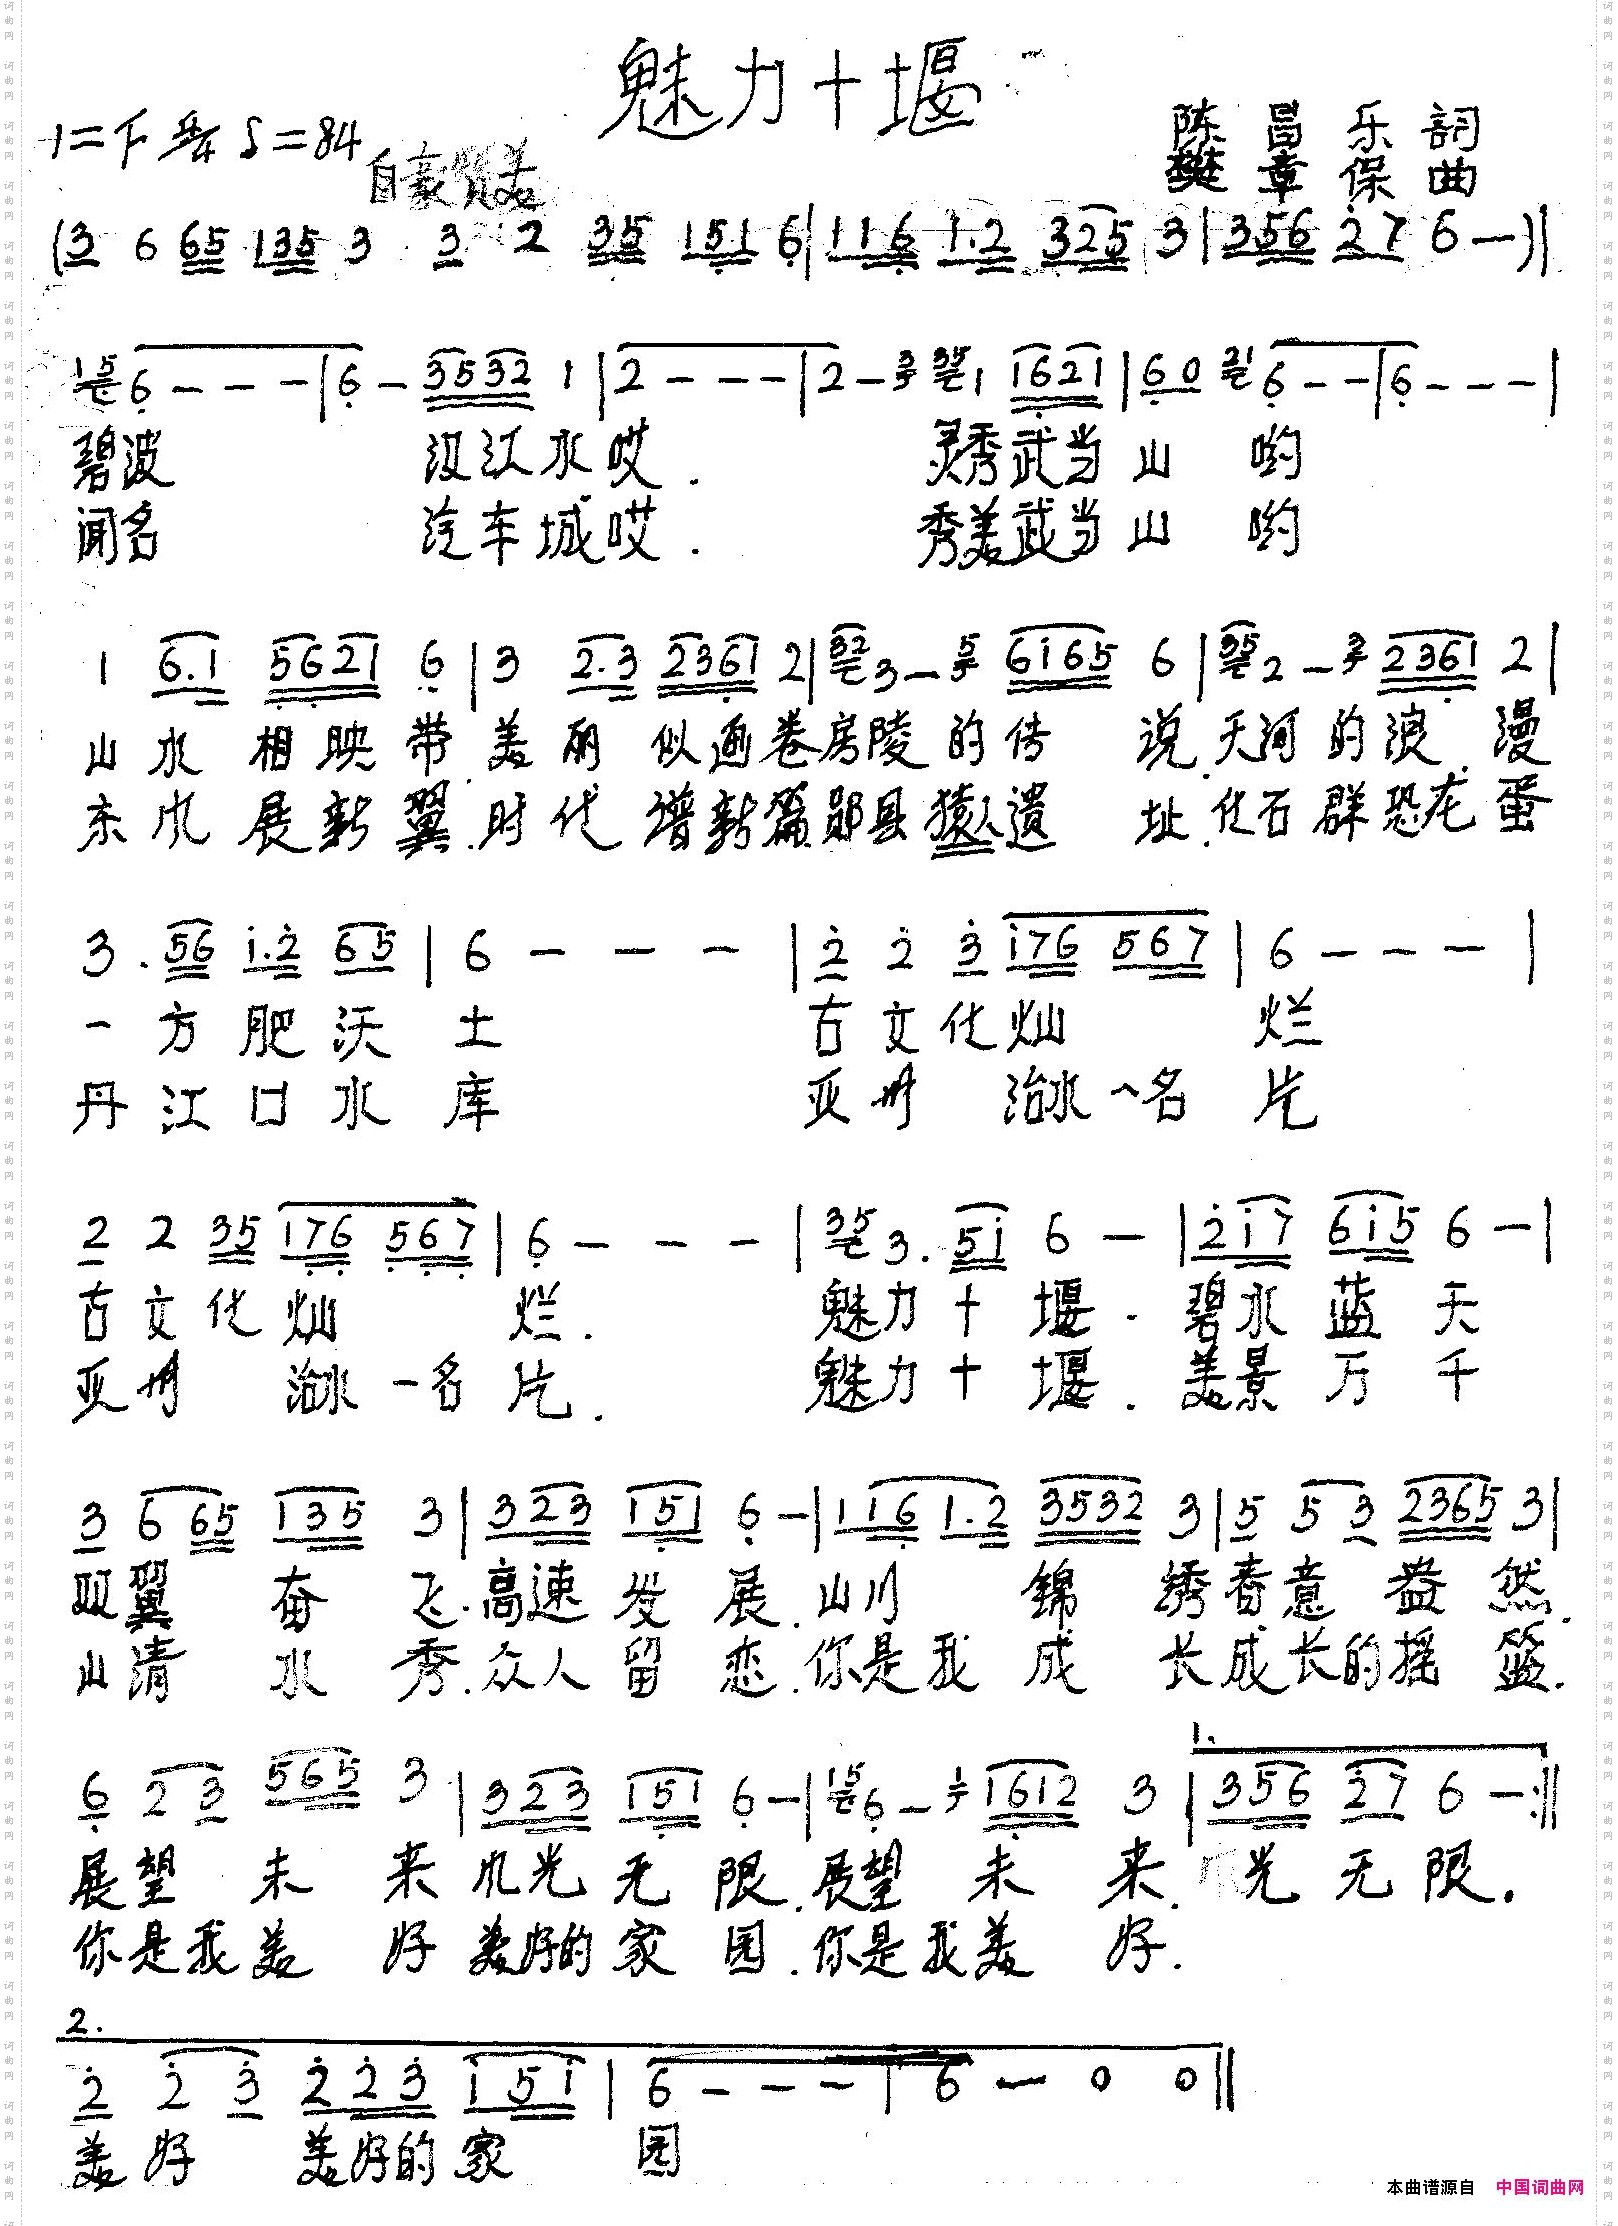 魅力十堰
1=F 4/4 ♩=84
陈昌乐 詞
自豪 美
樊章保 曲
(3 6 65 135 3 3 2 35 151 6|116 1.2 325 3|356 27 6—)‖
15 6---|6-3532 1|2---|2-3 35 1 1621|60 21 6--|6---|
碧波 汉江水哎. 灵秀武当山 哟
闻名 汽车城哎. 秀美武当山 哟
1 6.1 5621 6|3 2.3 2361 2|32 3-5 6165 6|35 2-3 2361 2|
山水相映带.美丽似画卷房陵的传说.天河的浪.漫
东风展新翼.时代谱新篇郧县猿人遗址.化石群恐龙蛋
3.56 1.2 65|6---|2 2 3 176 567|6---|
一方肥沃土 古文化灿 烂
丹江口水库 亚州 治水一名片
2 2 35 176 567|6---|35 3.51 6-|217 615 6-|
古文化灿 烂. 魅力十堰.碧水蓝天
亚州 治水一名片. 魅力十堰.美景万千
3 6 65 135 3|323 151 6-|116 1.2 3532 3|5 5 3 2365 3|
双翼 奋 飞.高速发展.山川 锦 绣春意盎然.
山清 水 秀.众人留恋.你是我成 长成长的摇篮.
1.
6 2 3 565 3|323 151 6-|15 6-1 1612 3|356 27 6-:‖
展望 未 来 风光无限.展望 未 来. 光无限.
你是我美 好 美好的家园.你是我美 好.
2.
2 2 3 223 151|6---|6-0 0‖
美好 美好的家 园
本曲谱源自 中国词曲网